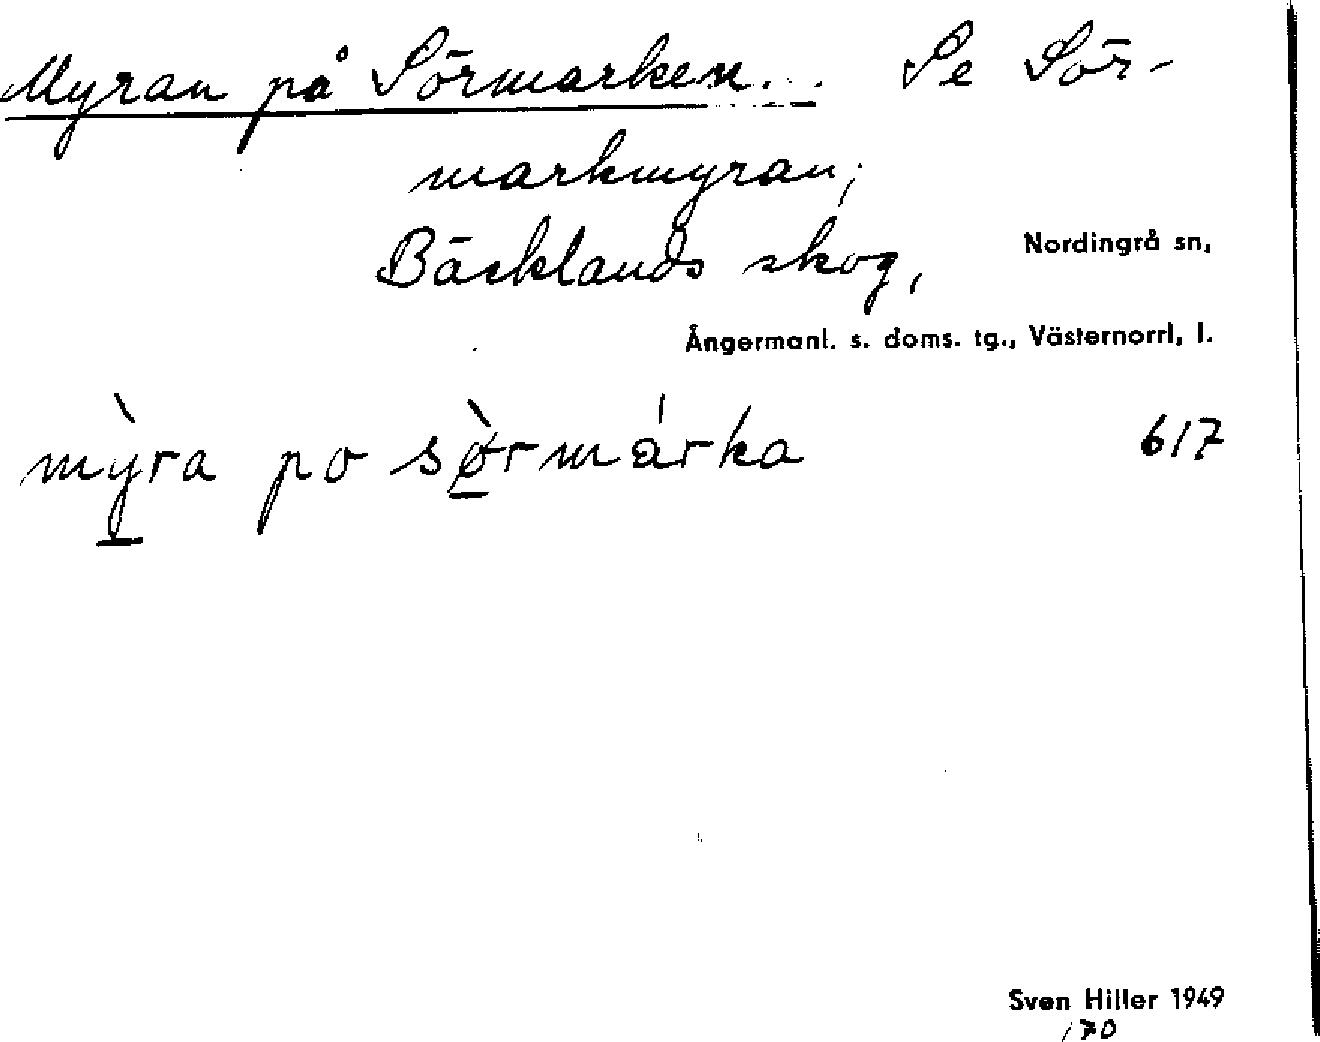 Myran på Sörmarken... Se Sör-
markmyran;
Bäcklands skog,
Nordingrå sn,
Ångermanl. s. doms. tg., Västernorrl, l.
mỳra po sørmárka
617
Sven Hiller 1949
170